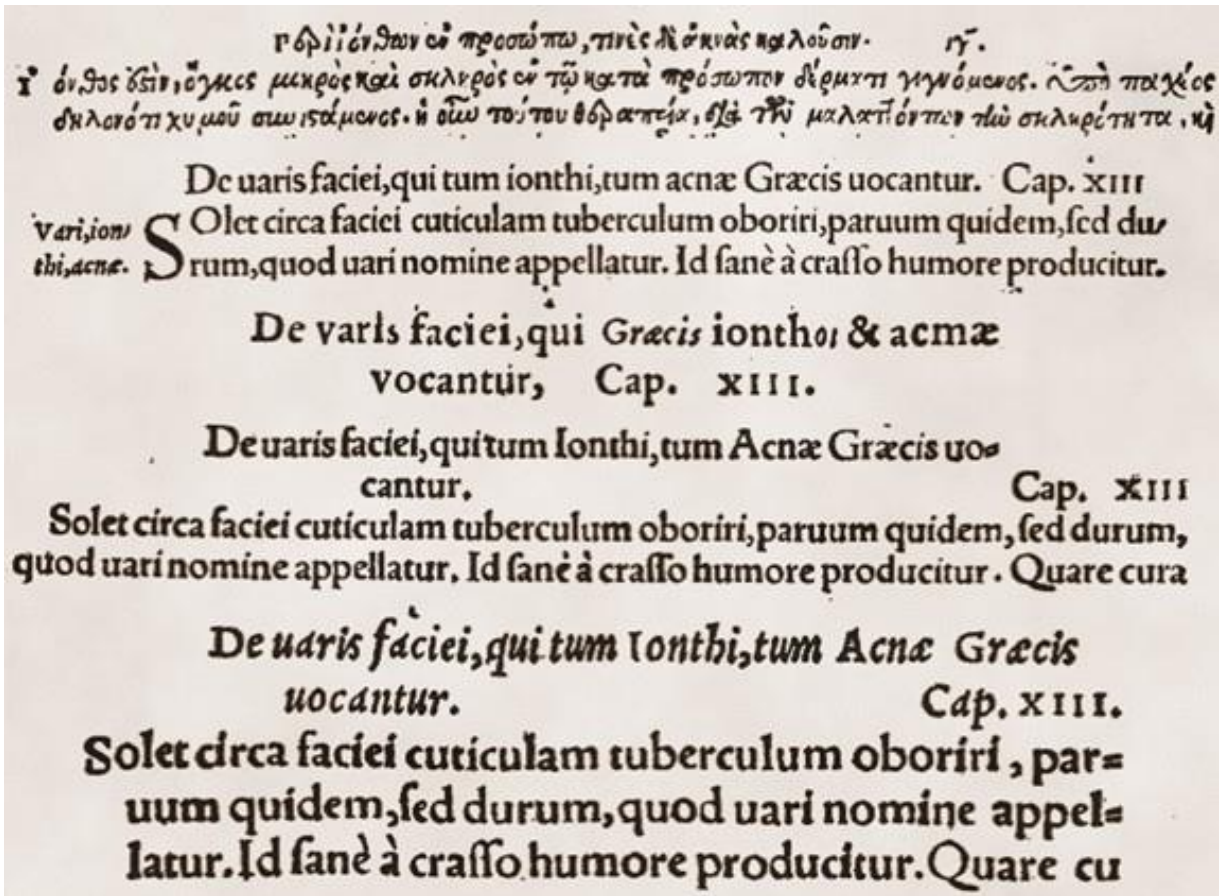 περὶ ἰόνθων ἐν προσώπω, τινὲς δὲ ἀκνὰς καλοῦσιν. ιγ.
ἰόνθος ἐστὶν, ὄγκος μικρὸς καὶ σκληρὸς ἐν τῷ κατὰ πρόσωπον δέρματι γιγνόμενος. ὑπὸ παχέος
δηλονότι χυμοῦ συνιστάμενος. ἡ οὖν τούτου θεραπεία, διὰ τῶν μαλαττόντων τὴν σκληρότητα, καὶ
De uaris faciei, qui tum ionthi, tum acnæ Græcis uocantur. Cap. XIII
Vari, ion/
thi, acnæ.
SOlet circa faciei cuticulam tuberculum oboriri, paruum quidem, ſed du/
rum, quod uari nomine appellatur. Id ſanè à craſſo humore producitur.
De varis faciei, qui Græcis ionthoι & acmæ
vocantur, Cap. XIII.
De uaris faciei, qui tum Ionthi, tum Acnæ Græcis uo=
cantur. Cap. XIII
Solet circa faciei cuticulam tuberculum oboriri, paruum quidem, ſed durum,
quod uari nomine appellatur. Id ſanè à craſſo humore producitur. Quare cura
De uaris faciei, qui tum Ionthi, tum Acnæ Græcis
uocantur. Cap. XIII.
Solet circa faciei cuticulam tuberculum oboriri, par=
uum quidem, ſed durum, quod uari nomine appel=
latur. Id ſanè à craſſo humore producitur. Quare cu